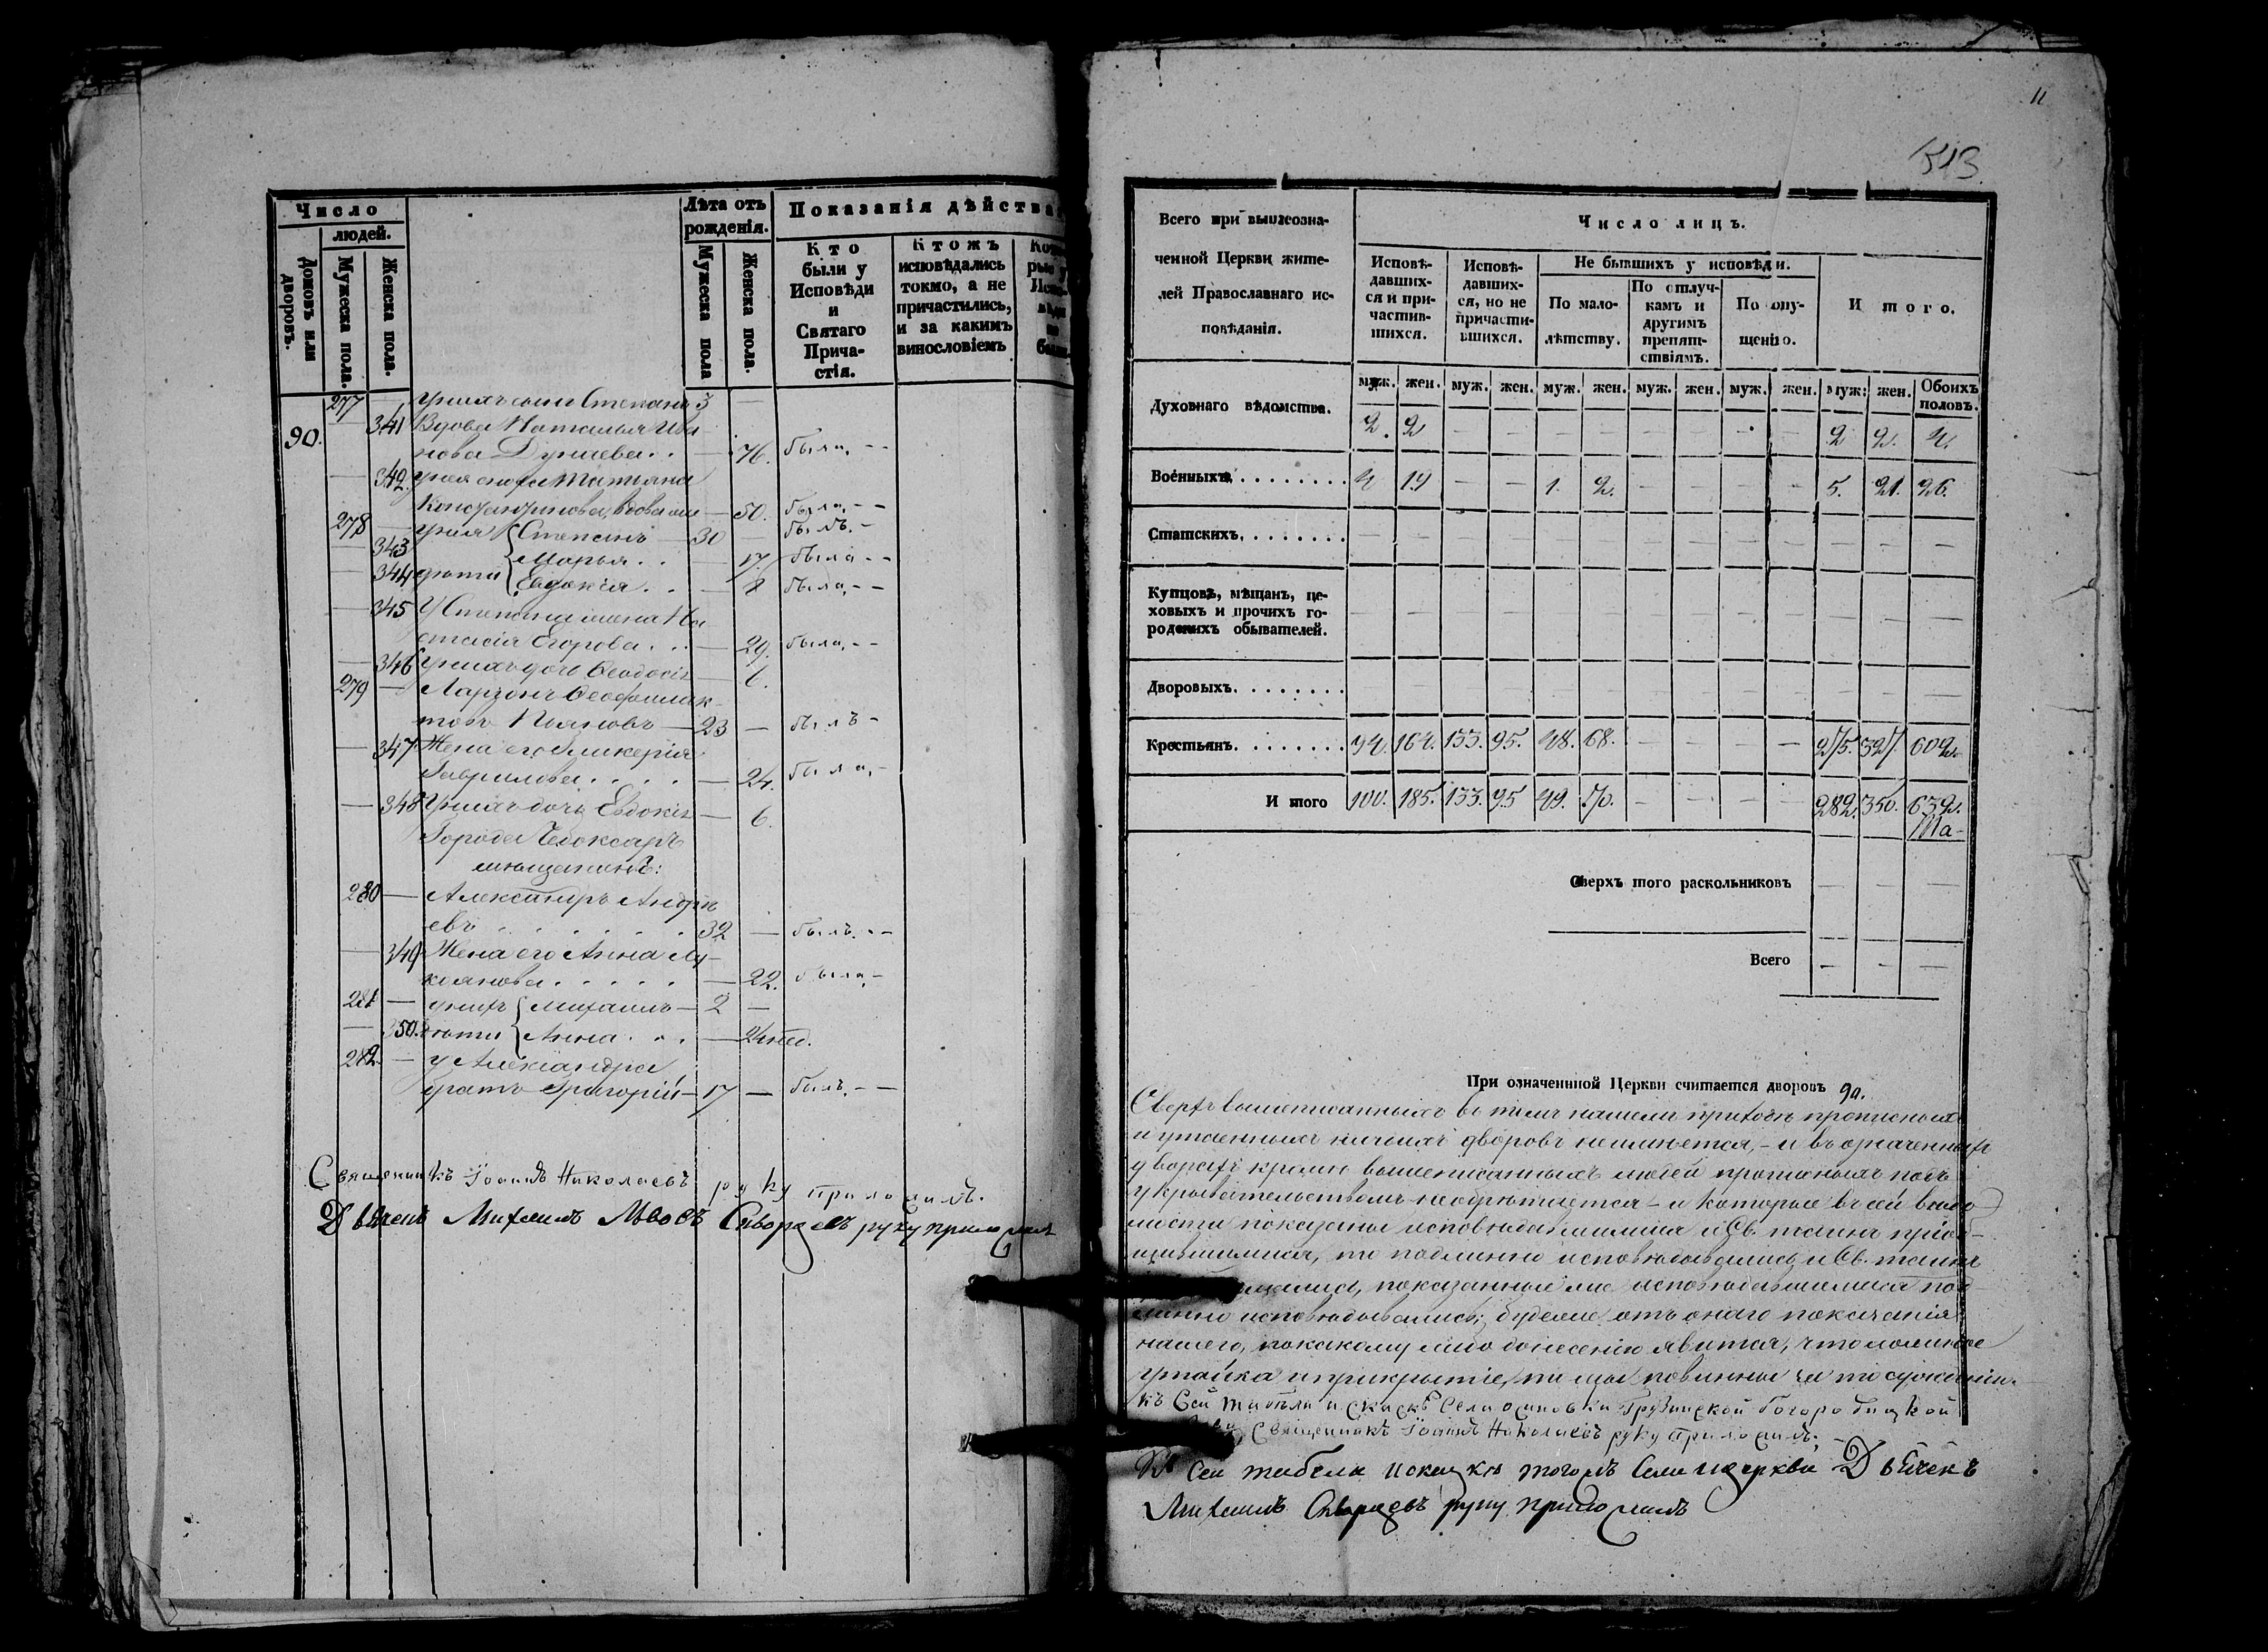 Число
людей.
Домовъ или дворовъ.
Мужеска пола.
Женска пола.
Лѣта отъ рожденія.
Мужеска пола
Женска пола.
Показанія дѣйства
Кто были у Исповѣди и Святаго Прича-стія.
Ктожъ исповѣдались токмо, а не причастились, и за какимъ винословіемъ
277 — у нихъ сынъ Степанъ 3 —
90. — 341 Вдова Наталья Ива-
нова Дунаева . . — 76. была, - -
— 342. у нея сноха Татьяна
Константинова, вдова — 50. была, - -
278 — у нея Степанъ — 30 — былъ. -
— 343 Марья . . — 17. была - -
— 344 дѣти Евдокія . . — 8 была, - -
— 345 У Степана жена На-
стасія Егорова . . . — 29. была, - -
— 346 у нихъ дочь Ѳеодосія — 6.
279 — Ларіонъ Ѳеофилак-
товъ — 23 — былъ -
— 347 Жена его Гликерія
Гаврилова . . . . — 24. была, -
— 348 У нихъ дочь Евдокія — 6.
Города Чебоксаръ
мещанинъ:
280 — Александръ Андрѣ-
евъ . . . . . . 32 — былъ. - -
— 349 Жена его Анна Лу-
кіянова . . . . . — 22. была, -
281 — у нихъ Михаилъ — 2 —
— 350. дѣти Анна . . . — 2 нед.
282. — у Александра
братъ Григорій — 17 — былъ. - -
Священникъ Іоаннъ Николаевъ руку приложилъ.
Дьячекъ Михаилъ Львовъ Скворцевъ руку приложилъ
11
513
Всего при вышеозна-
ченной Церкви жите-
лей Православнаго ис-
повѣданія.
Число лицъ.
Исповѣ-давших-ся и при-частив-шихся.
Исповѣ-давших-ся, но не причасти-вшихся.
Не бывшихъ у исповѣди.
По мало-лѣтству.
По отлуч-камъ и другимъ препят-ствіямъ.
По опу-щенію.
Итого.
муж. жен. муж. жен. муж. жен. муж. жен. муж. жен. муж: жен. Обоихъ половъ.
Духовнаго вѣдомства. 2. 2 — — — — — — — — 2 2. 4.
Военныхъ . . . . . . . . 4 19 — — 1. 2. — — — — 5. 21. 26.
Статскихъ. . . . . . . . — — — — — — — — — — — — —
Купцовъ, мѣщанъ, це-
ховыхъ и прочихъ го-
родскихъ обывателей. — — — — — — — — — — — — —
Дворовыхъ. . . . . . . . — — — — — — — — — — — — —
Крестьянъ. . . . . . . . 94. 164. 133. 95. 48. 68. — — — — 275. 327. 602.
И того 100. 185. 133. 95 49. 70. — — — — 282. 350. 632.
Сверхъ того раскольниковъ — — —
Всего — — —
При означенной Церкви считается дворовъ 90.
Сверхъ вышеписанныхъ въ томъ нашемъ приходѣ прописныхъ
и утаенныхъ ничьихъ дворовъ не имѣется, - и въ означенныхъ
дворахъ кромѣ вышеписанныхъ людей прописныхъ подъ
укрывательствомъ не обрѣтается - и которые въ сей вѣдо-
мости показаны исповѣдавшимися и Св. таинъ пріоб-
щившимися, тѣ подлинно исповѣдывались, и Св. таинъ
показанные же исповѣдавшимися под-
линно исповѣдывались; буде же отъ онаго показанія
нашего, по какому либо донесенію явится, что ложное
утайка и прикрытіе, повинны
къ сей табели и скаскѣ Села Осиновки Грузинской Богородицкой
Священникъ Іоаннъ Николаевъ руку приложилъ; -
Къ сей табели и скаскѣ тогожъ Села церкви Дьячекъ
Михаилъ Скворцевъ руку приложилъ